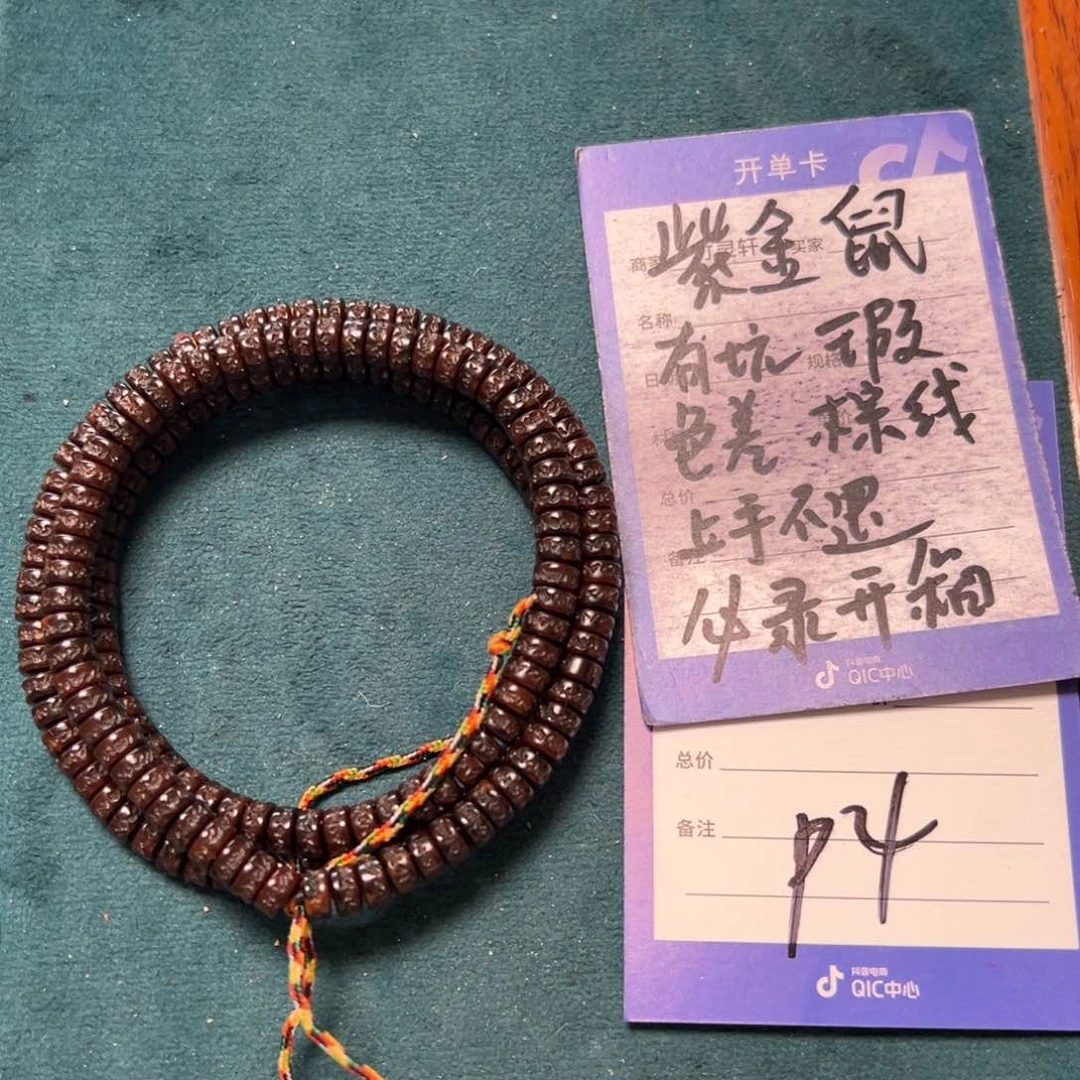 开单卡
紫金鼠
商家 灵轩 买家
名称
有坑 瑕
日 规格
色差 棕线
总价
上手不退
备注
必录开箱
抖音电商
QIC中心
总价
备注
p4
抖音电商
QIC中心